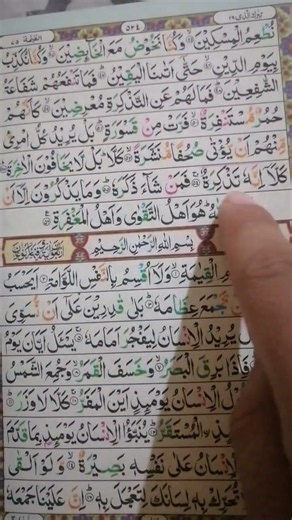 نُطْعِمُ الْمِسْكِيْنَ وَكُنَّا نَخُوْضُ مَعَ الْخَآئِضِيْنَ وَكُنَّا نُكَذِّبُ
بِيَوْمِ الدِّيْنِ حَتّٰٓى اَتٰىنَا الْيَقِيْنُ فَمَا تَنْفَعُهُمْ شَفَاعَةُ
الشّٰفِعِيْنَ فَمَا لَهُمْ عَنِ التَّذْكِرَةِ مُعْرِضِيْنَ كَاَنَّهُمْ
حُمُرٌ مُّسْتَنْفِرَةٌ فَرَّتْ مِنْ قَسْوَرَةٍ بَلْ يُرِيْدُ كُلُّ امْرِئٍ
مِّنْهُمْ اَنْ يُّؤْتٰى صُحُفًا مُّنَشَّرَةً كَلَّا بَلْ لَّا يَخَافُوْنَ الْاٰخِرَةَ
كَلَّآ اِنَّهٗ تَذْكِرَةٌ فَمَنْ شَآءَ ذَكَرَهٗ وَمَا يَذْكُرُوْنَ اِلَّآ اَنْ
هُوَ اَهْلُ التَّقْوٰى وَاَهْلُ الْمَغْفِرَةِ
بِسْمِ اللّٰهِ الرَّحْمٰنِ الرَّحِيْمِ
الْقِيٰمَةِ وَلَآ اُقْسِمُ بِالنَّفْسِ اللَّوَّامَةِ اَيَحْسَبُ
نَّجْمَعَ عِظَامَهٗ بَلٰى قٰدِرِيْنَ عَلٰٓى اَنْ نُّسَوِّىَ
يُرِيْدُ الْاِنْسَانُ لِيَفْجُرَ اَمَامَهٗ يَسْئَلُ اَيَّانَ يَوْمُ
فَاِذَا بَرِقَ الْبَصَرُ وَخَسَفَ الْقَمَرُ وَجُمِعَ الشَّمْسُ
الْاِنْسَانُ يَوْمَئِذٍ اَيْنَ الْمَفَرُّ كَلَّا لَا وَزَرَ
الْمُسْتَقَرُّ يُنَبَّؤُا الْاِنْسَانُ يَوْمَئِذٍ بِمَا قَدَّمَ
الْاِنْسَانُ عَلٰى نَفْسِهٖ بَصِيْرَةٌ وَّلَوْ اَلْقٰى
تُحَرِّكْ بِهٖ لِسَانَكَ لِتَعْجَلَ بِهٖ اِنَّ عَلَيْنَا جَمْعَهٗ